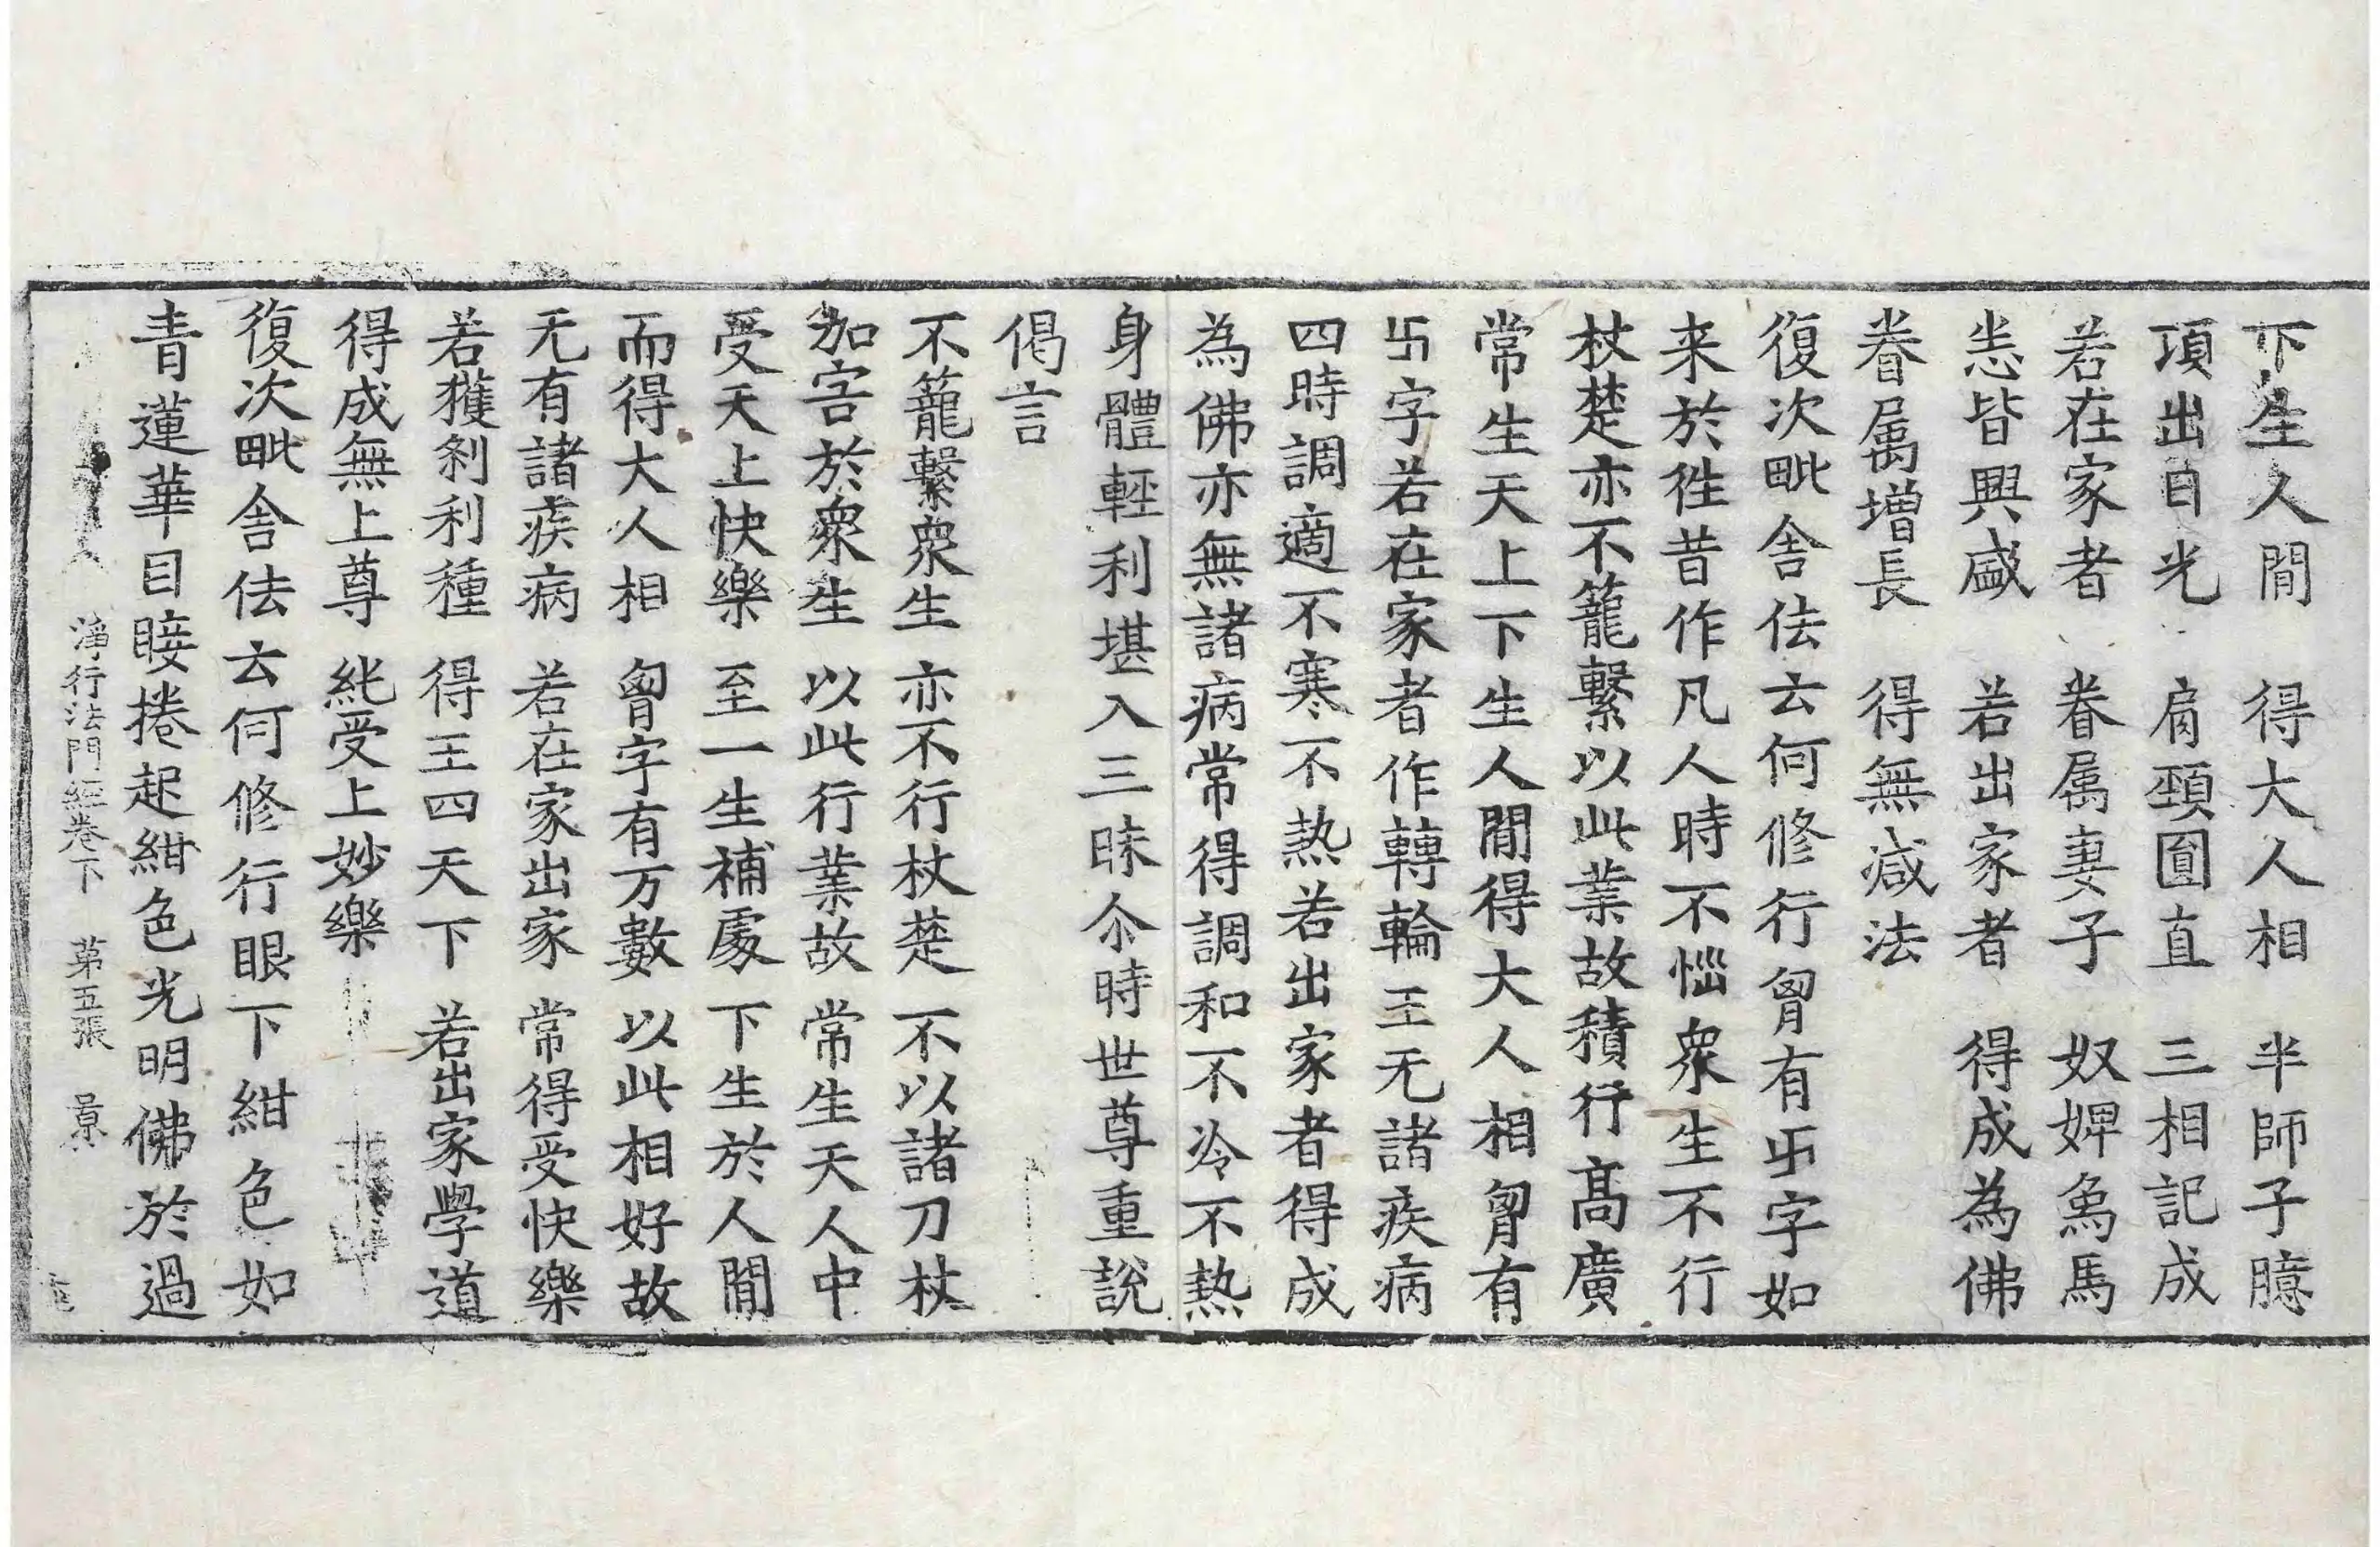 下生人間　得大人相　半師子臆
項出日光　肩頸圓直　三相記成
若在家者　眷属妻子　奴婢象馬
悉皆興盛　若出家者　得成為佛
眷属增長　得無減法
復次毗舍佉云何修行胷有卐字如
来於徃昔作凡人時不惱衆生不行
杖楚亦不籠繫以此業故積行髙廣
常生天上下生人間得大人相胷有
卐字若在家者作轉輪王无諸疾病
四時調適不寒不熱若出家者得成
為佛亦無諸病常得調和不冷不熱
身體輕利堪入三昧尒時世尊重說
偈言
不籠繫衆生　亦不行杖楚　不以諸刀杖
加害於衆生　以此行業故　常生天人中
受天上快樂　至一生補處　下生於人間
而得大人相　胷字有万數　以此相好故
无有諸疾病　若在家出家　常得受快樂
若獲剎利種　得王四天下　若出家學道
得成無上尊　純受上妙樂
復次毗舍佉云何修行眼下紺色如
青蓮華目睫捲起紺色光明佛於過
淨行法門經卷下　第五張　景